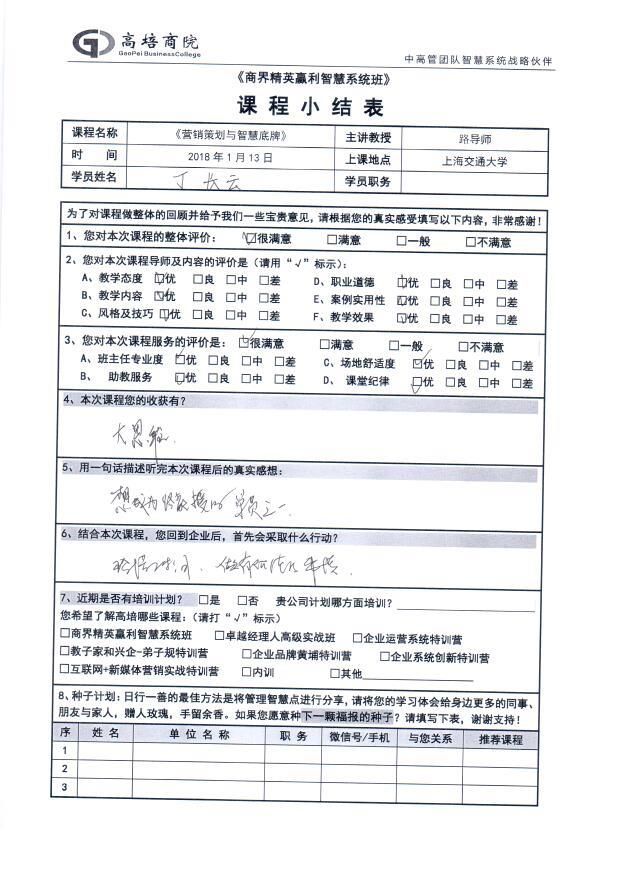 高培商院
GaoPei BusinessCollege
中高管团队智慧系统战略伙伴
《商界精英赢利智慧系统班》
课程小结表
课程名称 《营销策划与智慧底牌》 主讲教授 路导师
时 间 2018 年 1 月 13 日 上课地点 上海交通大学
学员姓名 丁长云 学员职务
为了对课程做整体的回顾并给予我们一些宝贵意见,请根据您的真实感受填写以下内容,非常感谢!
1、您对本次课程的整体评价: ☑很满意 □满意 □一般 □不满意
2、您对本次课程导师及内容的评价是(请用“√”标示):
A、教学态度 ☑优 □良 □中 □差 D、职业道德 ☑优 □良 □中 □差
B、教学内容 ☑优 □良 □中 □差 E、案例实用性 ☑优 □良 □中 □差
C、风格及技巧 ☑优 □良 □中 □差 F、教学效果 ☑优 □良 □中 □差
3、您对本次课程服务的评价是: ☑很满意 □满意 □一般 □不满意
A、班主任专业度 ☑优 □良 □中 □差 C、场地舒适度 ☑优 □良 □中 □差
B、 助教服务 ☑优 □良 □中 □差 D、 课堂纪律 ☑优 □良 □中 □差
4、本次课程您的收获有?
大思维.
5、用一句话描述听完本次课程后的真实感想:
想成为路教授的 学员之一
6、结合本次课程,您回到企业后,首先会采取什么行动?
7、近期是否有培训计划? □是 □否 贵公司计划哪方面培训?
您希望了解高培哪些课程:(请打“√”标示)
□商界精英赢利智慧系统班 □卓越经理人高级实战班 □企业运营系统特训营
□教子家和兴企-弟子规特训营 □企业品牌黄埔特训营 □企业系统创新特训营
□互联网+新媒体营销实战特训营 □内训 □其他
8、种子计划:日行一善的最佳方法是将管理智慧点进行分享,请将您的学习体会给身边更多的同事、
朋友与家人,赠人玫瑰,手留余香。如果您愿意种下一颗福报的种子?请填写下表,谢谢支持!
序 姓 名 单 位 名 称 职 务 微信号/手机 与您关系 推荐课程
1
2
3